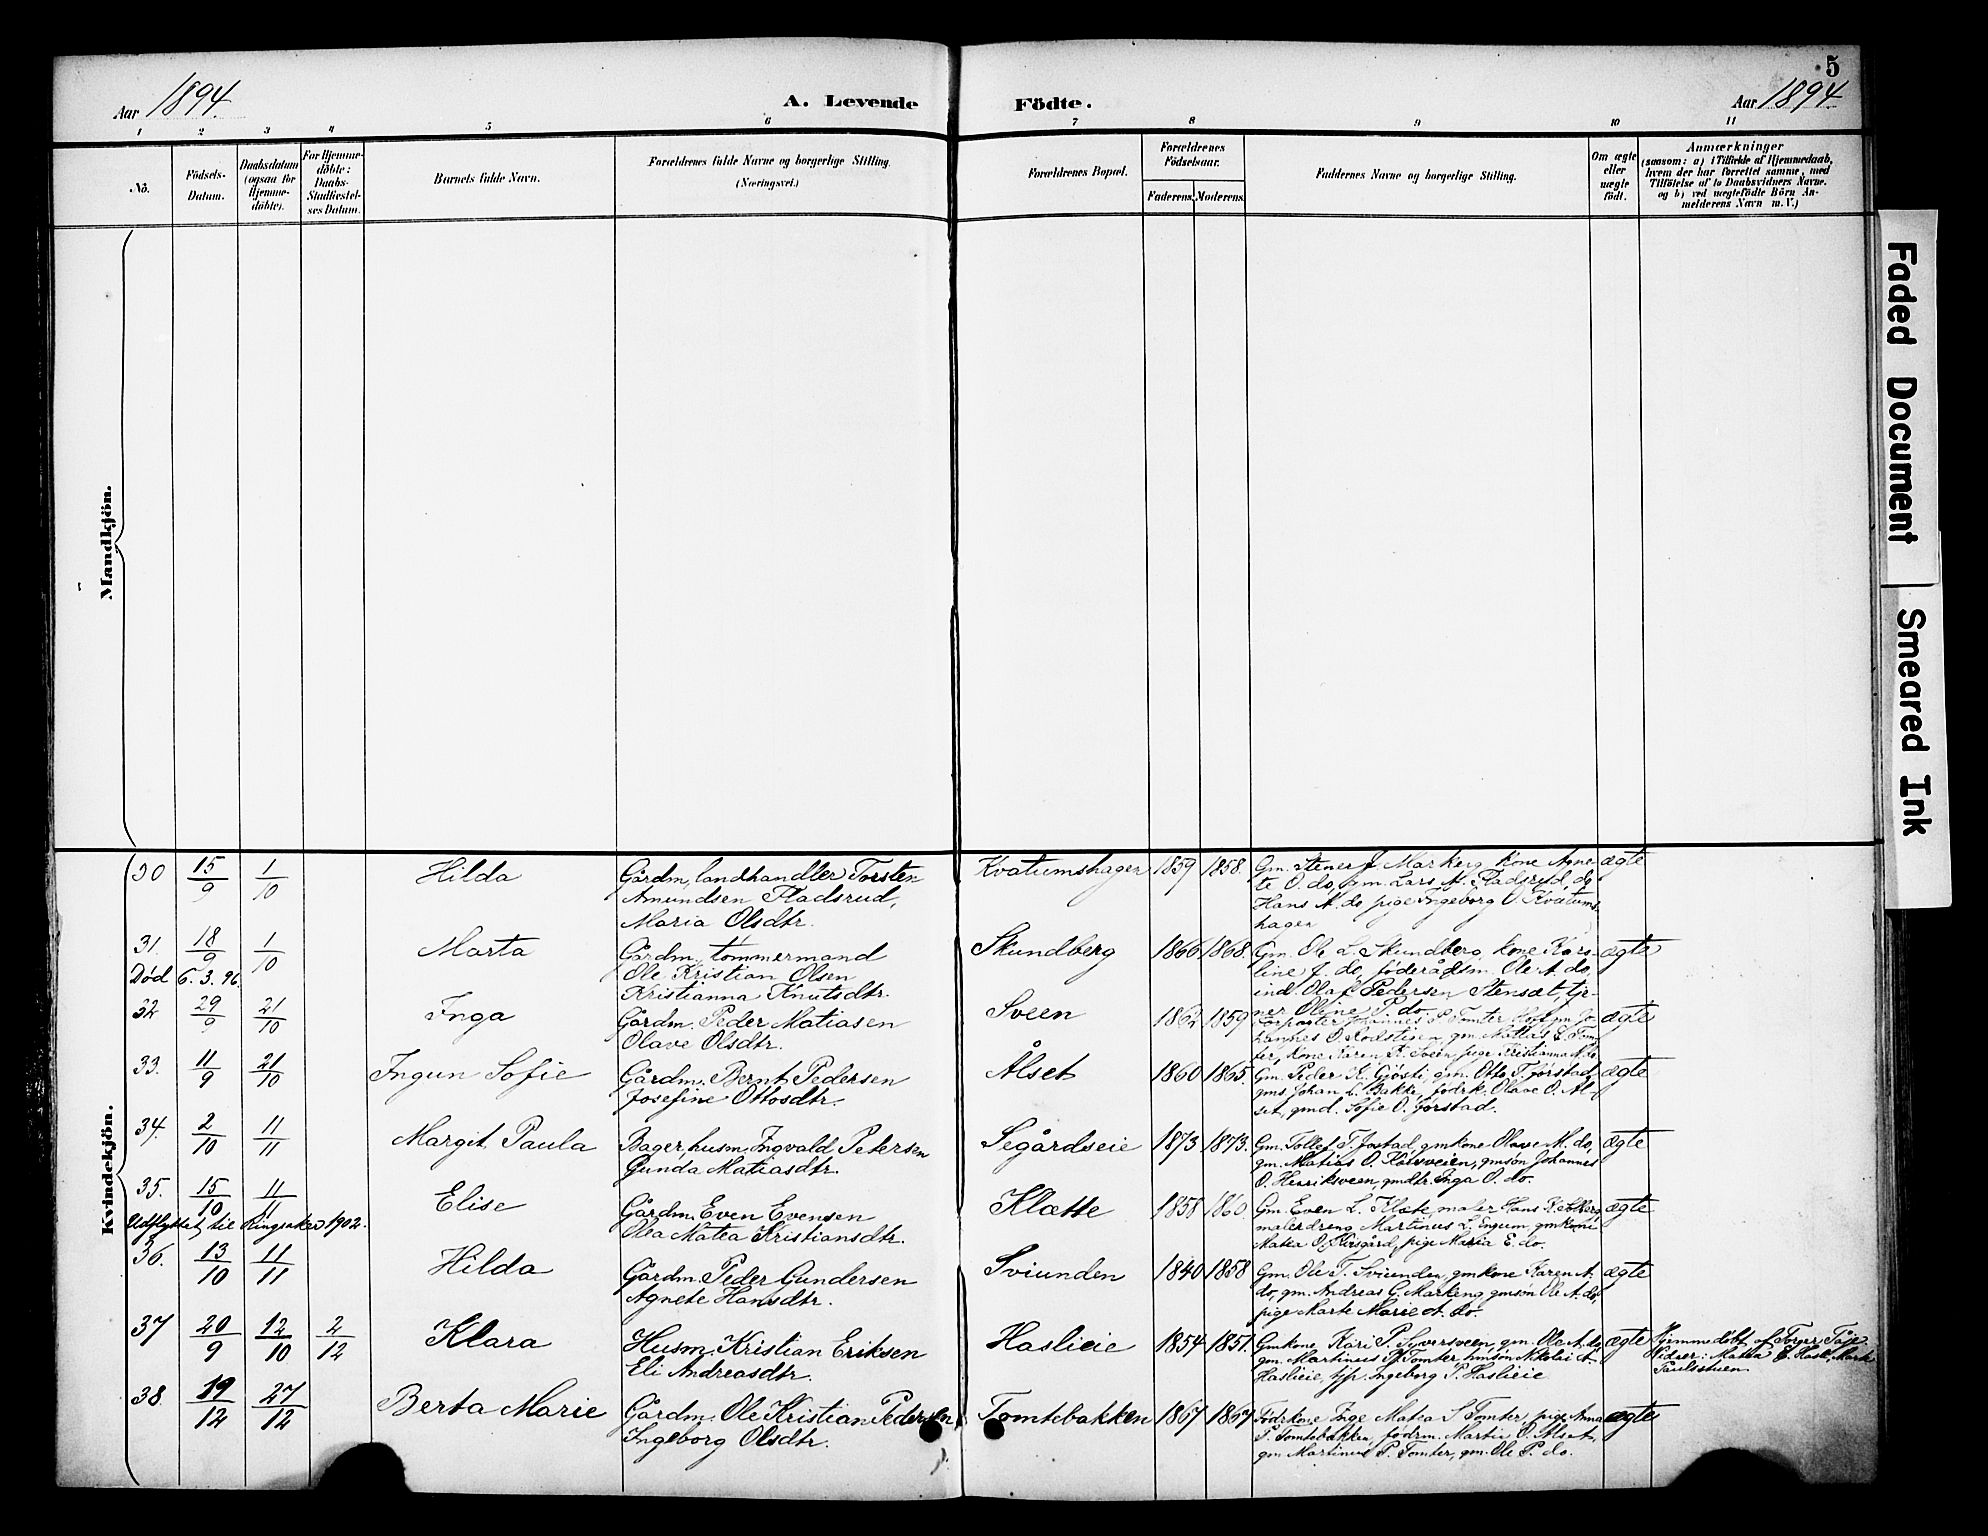 5
Aar 1894.
A. Levende
Födte.
Aar 1894.
1 2 3 4 5 6 7 8 9 10 11
No.
Födsels-
Datum.
Daabsdatum
(ogsaa for
Hjemme-
döbte).
For Hjemme-
döbte:
Daabs-
Stadfæstel-
ses Datum.
Barnets fulde Navn.
Forældrenes fulde Navne og borgerlige Stilling.
(Næringsvei.)
Forældrenes Bopæl.
Forældrenes
Födselsaar.
Faderens.
Moderens.
Faddernes Navne og borgerlige Stilling.
Om ægte
eller
uægte
födt.
Anmærkninger
(saasom: a) i Tilfælde af Hjemmedaab,
hvem der har forrettet samme, med
Tilföielse af to Daabsvidners Navne.
og b) ved uægtefödte Börn An-
melderens Navn m. V.)
Mandkjön.
Kvindekjön.
30 15/9 1/10 Hilda
Gårdm, landhandler Torsten
Amundsen Fladsrud,
Maria Olsdtr.
Kvatumshagen 1859 1858.
Gm. Stener J. Markeng, kone Agne-
te O. do, gm. Lars A. Fladsrud, do
Hans A. do pige Ingeborg O. Kvatums-
hagen
ægte
31. 18/9 1/10 Marta
Død 6.3.96.
Gårdm. tømmermand
Ole Kristian Olsen
Kristianna Knutsdtr.
Skundberg 1866 1868.
Gm. Ole L. Skundberg, kone Karo-
line J. do, føderådsm. Ole A. do,
ind. Olaf Pedersen Stensæt, tje-
ner Oline P. do
ægte
32 29/9 21/10 Inga
Gårdm. Peder Matiasen
Olave Olsdtr.
Sveen 1862 1859
Johannes Tomter
ægte
33. 11/9 21/10 Ingun Sofie
Gårdm. Bernt Pedersen
Josefine Ottosdtr.
Ålset 1860 1865.
Gm. Peder K. Gjøsti, gm. Otto T. Jørstad,
gms. Johan L. Bakke, fødrk. Olave O. Ål-
set, gmd. Sofie O. Jørstad.
ægte
34. 2/10 11/11 Margit Paula
Bager, husm. Ingvald Petersen
Gunda Matiasdtr.
Segårdseie 1873 1873.
Gm. Tollef T. Jostad, gmkone Olave M. do,
gm. Matias O. Korsveien, gmsøn Johannes
O. Henriksveen, gmdtr. Inga O. do.
ægte
35. 15/10 11/11 Elise
Udflyttet til Ringsaker 1902.
Gårdm. Even Evensen
Olva Matea Kristiansdtr.
Klætte 1858 1860
Gm. Even L. Klæte, maler Hans
malerdreng Martinus L. Engum, gmkone
Matea O. pige Maria E. do.
ægte
36. 13/10 11/11 Hilda
Gårdm. Peder Gundersen
Agnete Hansdtr.
Sviunden 1840 1858
Gm. Ole T. Sviunden, gmkone Karen A.
do, gm. Andreas G. Markeng, gmsøn Ole A. do,
pige Marte Marie A. do.
ægte
37 20/9 12/10 2/12 Klara
Husm. Kristian Eriksen
Eli Andreasdtr.
Haslieie 1854 1851.
Gmkone Kari P. gm. Ole A. do,
gm. Martinus P. Tomter, gmsøn Nikolai A.
Haslieie, tjp. Ingeborg P. Haslieie
ægte
Hjemmedøbt af Torger
Marte
Paulsstuen
38 19/12 27/12 Berta Marie
Gårdm. Ole Kristian Pedersen
Ingeborg Olsdtr.
Tomtebakken 1867 1867
Fødrkone Inge Matea S. Tomter, pige Anna
P. Tomtebakken, fødrm. Martin O. Alset,
gm. Martinus P. Tomter, gm. Ole P. do.
ægte
Faded Document
Smeared Ink